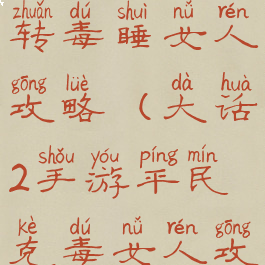 zhuǎn dú shuì nǚ rén
转毒睡女人
gōng lüè dà huà
攻略(大话
shǒu yóu píng mín
2手游平民
kè dú nǚ rén gōng
克毒女人攻